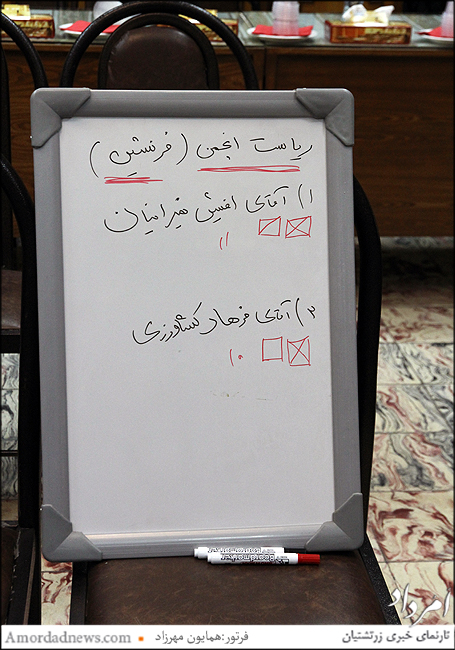 ریاست انجمن (فرنشین)
۱) آقای افشین نمیرانیان
۱۱
۲) آقای فرهاد کشاورزی
۱۰
امرداد
تارنمای خبری زرتشتیان
فرتور:همایون مهرزاد
Amordadnews.com